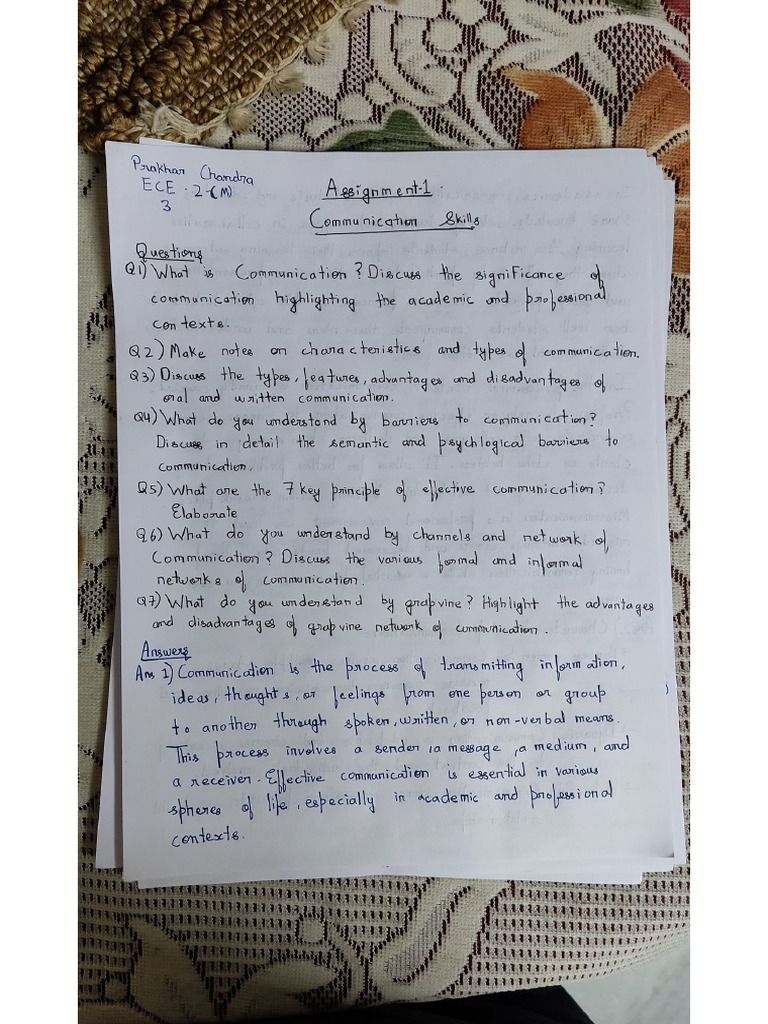 Prakhar Chandra
ECE - 2-(M)
3
Assignment-1
Communication Skills
Questions
Q1) What is Communication? Discuss the significance of
communication highlighting the academic and professional
contexts.
Q2) Make notes on characteristics and types of communication.
Q3) Discuss the types, features, advantages and disadvantages of
oral and written communication.
Q4) What do you understand by barriers to communication?
Discuss in detail the semantic and psychlogical barriers to
communication.
Q5) What are the 7 key principle of effective communication?
Elaborate
Q6) What do you understand by channels and network of
Communication? Discuss the various formal and informal
networks of communication.
Q7) What do you understand by grapvine? Highlight the advantages
and disadvantages of grapvine network of communication.
Answers
Ans 1) Communication is the process of transmitting information,
ideas, thoughts, or feelings from one person or group
to another through spoken, written, or non-verbal means.
This process involves a sender, a message, a medium, and
a receiver. Effective communication is essential in various
spheres of life, especially in academic and professional
contexts.